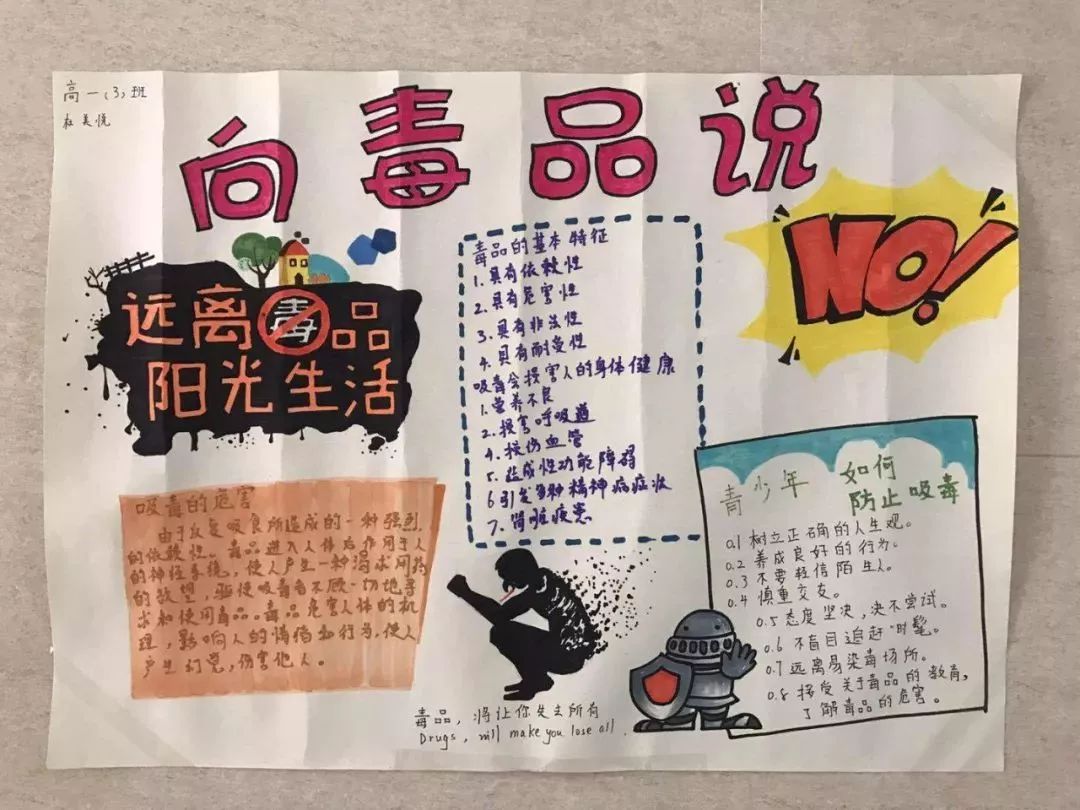 高一(3)班
杜美悦
向毒品说
NO!
远离毒品
阳光生活
毒品的基本特征
1.具有依赖性
2.具有危害性
3.具有非法性
4.具有耐受性
吸毒会损害人的身体健康
1.营养不良
2.损害呼吸道
4.损伤血管
5.造成性功能障碍
6引发多种精神病症状
7.肾脏疾患
吸毒的危害
由于反复吸食所造成的一种强烈
的依赖性。毒品进入人体后作用于人
的神经系统,使人产生一种渴求用药
的欲望,驱使吸毒者不顾一切地寻
求和使用毒品。毒品危害人体的机
理,影响人的情绪和行为,使人
产生幻觉,伤害他人。
青少年 如何
防止吸毒
0.1 树立正确的人生观。
0.2 养成良好的行为。
0.3 不要轻信陌生人。
0.4 慎重交友。
0.5 态度坚决,决不尝试。
0.6 不盲目追赶“时髦。
0.7 远离易染毒场所。
0.8 接受关于毒品的教育,
了解毒品的危害。
毒品,将让你失去所有
Drugs, will make you lose all.